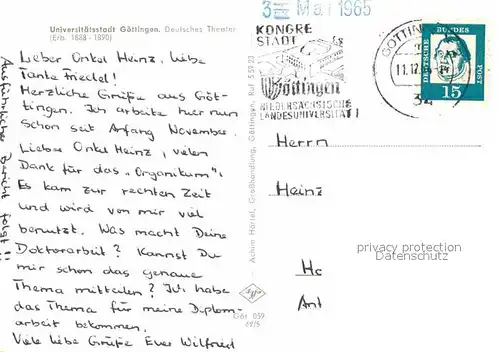 Universitätsstadt Göttingen. Deutsches Theater
(Erb. 1888 - 1890)
Lieber Onkel Heinz, liebe
Tante Friedel!
Herzliche Grüße aus Göt-
tingen. Ich arbeite hier nun
schon seit Anfang November.
Lieber Onkel Heinz, vielen
Dank für das "Organikum".
Es kam zur rechten Zeit
und wird von mir viel
benutzt. Was macht Deine
Doktorarbeit? Kannst Du
mir schon das genaue
Thema mitteilen? Ich habe
das Thema für meine Diplom-
arbeit bekommen.
Viele liebe Grüße Euer Wilfried
Ausführlicher Bericht folgt!!
Achim Hartel, Großhandlung, Göttingen, Ruf 5 59 23
Gör 059
3 Mai 1965
KONGRE
STADT
Göttingen
NIEDERSÄCHSISCHE
LANDESUNIVERSITÄT
GÖTTINGEN
11.12.
34
DEUTSCHE
BUNDES
POST
15
Herrn
Heinz
Ha
Amt
privacy protection
Datenschutz